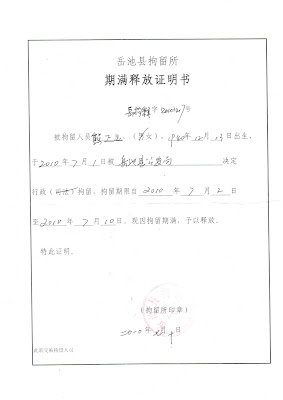 岳池县拘留所
期满释放证明书
字 号
被拘留人员熊 （男女），1980年12月13日出生，
于2010年7月1日被岳池县公安局 决定
行政（司法）拘留，拘留期限自 2010 年 7 月 2 日
至 2010 年 7 月 10 日，现因拘留期满，予以释放。
特此证明。
（拘留所印章）
2010年 月 日
此联交被拘留人员